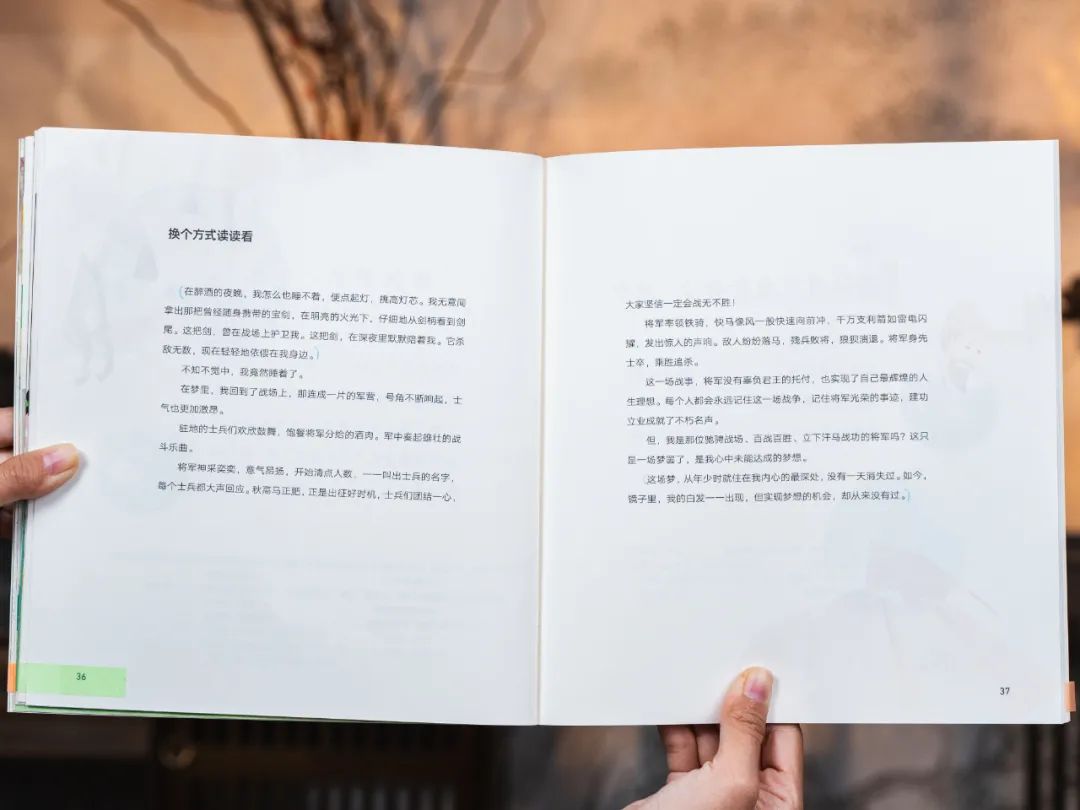 换个方式读读看
在醉酒的夜晚，我怎么也睡不着，便点起灯，挑高灯芯。我无意间
拿出那把曾经随身携带的宝剑，在明亮的火光下，仔细地从剑柄看到剑
尾。这把剑，曾在战场上护卫我。这把剑，在深夜里默默陪着我。它杀
敌无数，现在轻轻地依偎在我身边。
不知不觉中，我竟然睡着了。
在梦里，我回到了战场上，那连成一片的军营，号角不断响起，士
气也更加激昂。
驻地的士兵们欢欣鼓舞，饱餐将军分给的酒肉。军中奏起雄壮的战
斗乐曲。
将军神采奕奕，意气昂扬，开始清点人数，一一叫出士兵的名字，
每个士兵都大声回应。秋高马正肥，正是出征好时机，士兵们团结一心，
36
大家坚信一定会战无不胜！
将军率领铁骑，快马像风一般快速向前冲，千万支利箭如雷电闪
耀，发出惊人的声响。敌人纷纷落马，残兵败将，狼狈溃退。将军身先
士卒，乘胜追杀。
这一场战事，将军没有辜负君王的托付，也实现了自己最辉煌的人
生理想。每个人都会永远记住这一场战争，记住将军光荣的事迹，建功
立业成就了不朽名声。
但，我是那位驰骋战场、百战百胜、立下汗马战功的将军吗？这只
是一场梦罢了，是我心中未能达成的梦想。
这场梦，从年少时就住在我内心的最深处，没有一天消失过。如今，
镜子里，我的白发一一出现，但实现梦想的机会，却从来没有过。
37